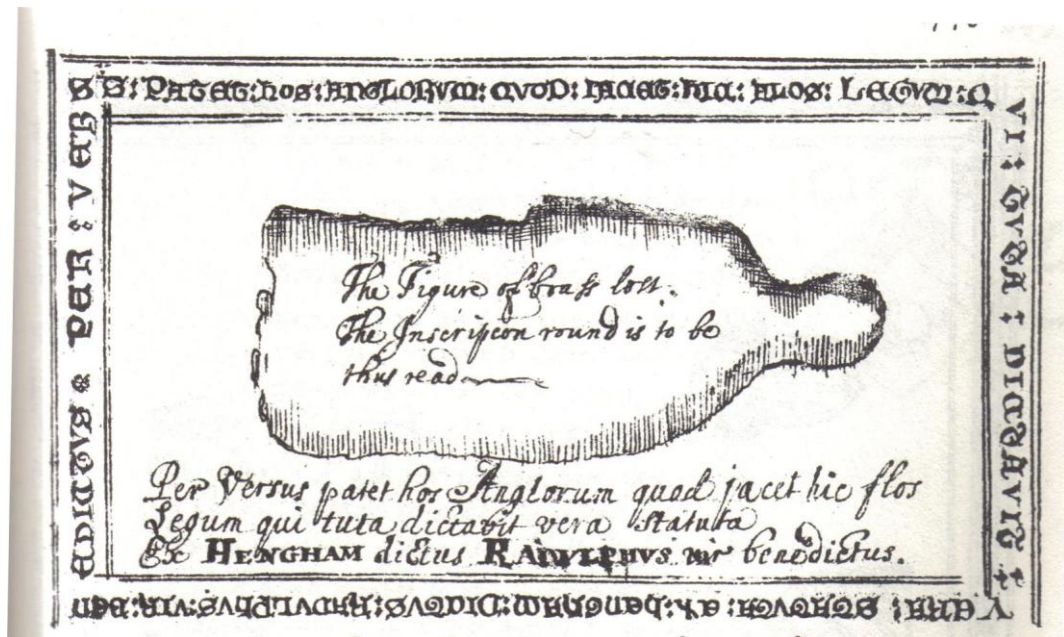 S S: PATET: hOS: ANGLORVM: QVOD: IACET: hIC: FLOS: LEGVM: Q
VI : TVTA : DICTAVIT :
VERA : STATVTA : EX: hENGhAM: DICTVS: RADVLPhVS: VIR: BEN
EDICTVS PER : VER
The Figure of brass lost.
The Inscripcon round is to be
thus read
Per Versus patet hos Anglorum quod jacet hic flos
Legum qui tuta dictavit vera statuta
Ex HENGHAM dictus RADULPHVS vir benedictus.